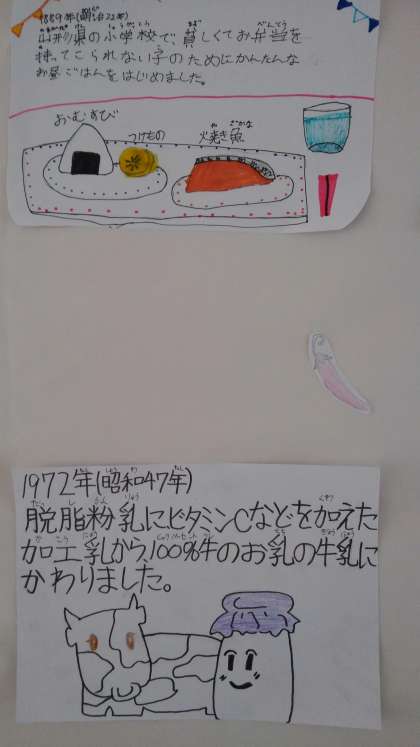 1889年(明治22年)
山形県の小学校で、貧しくてお弁当を
持ってこられない子のためにかんたんな
お昼ごはんをはじめました。
おむすび
つけもの
焼き魚
1972年(昭和47年)
脱脂粉乳にビタミンCなどを加えた
加工乳から、100%牛のお乳の牛乳に
かわりました。